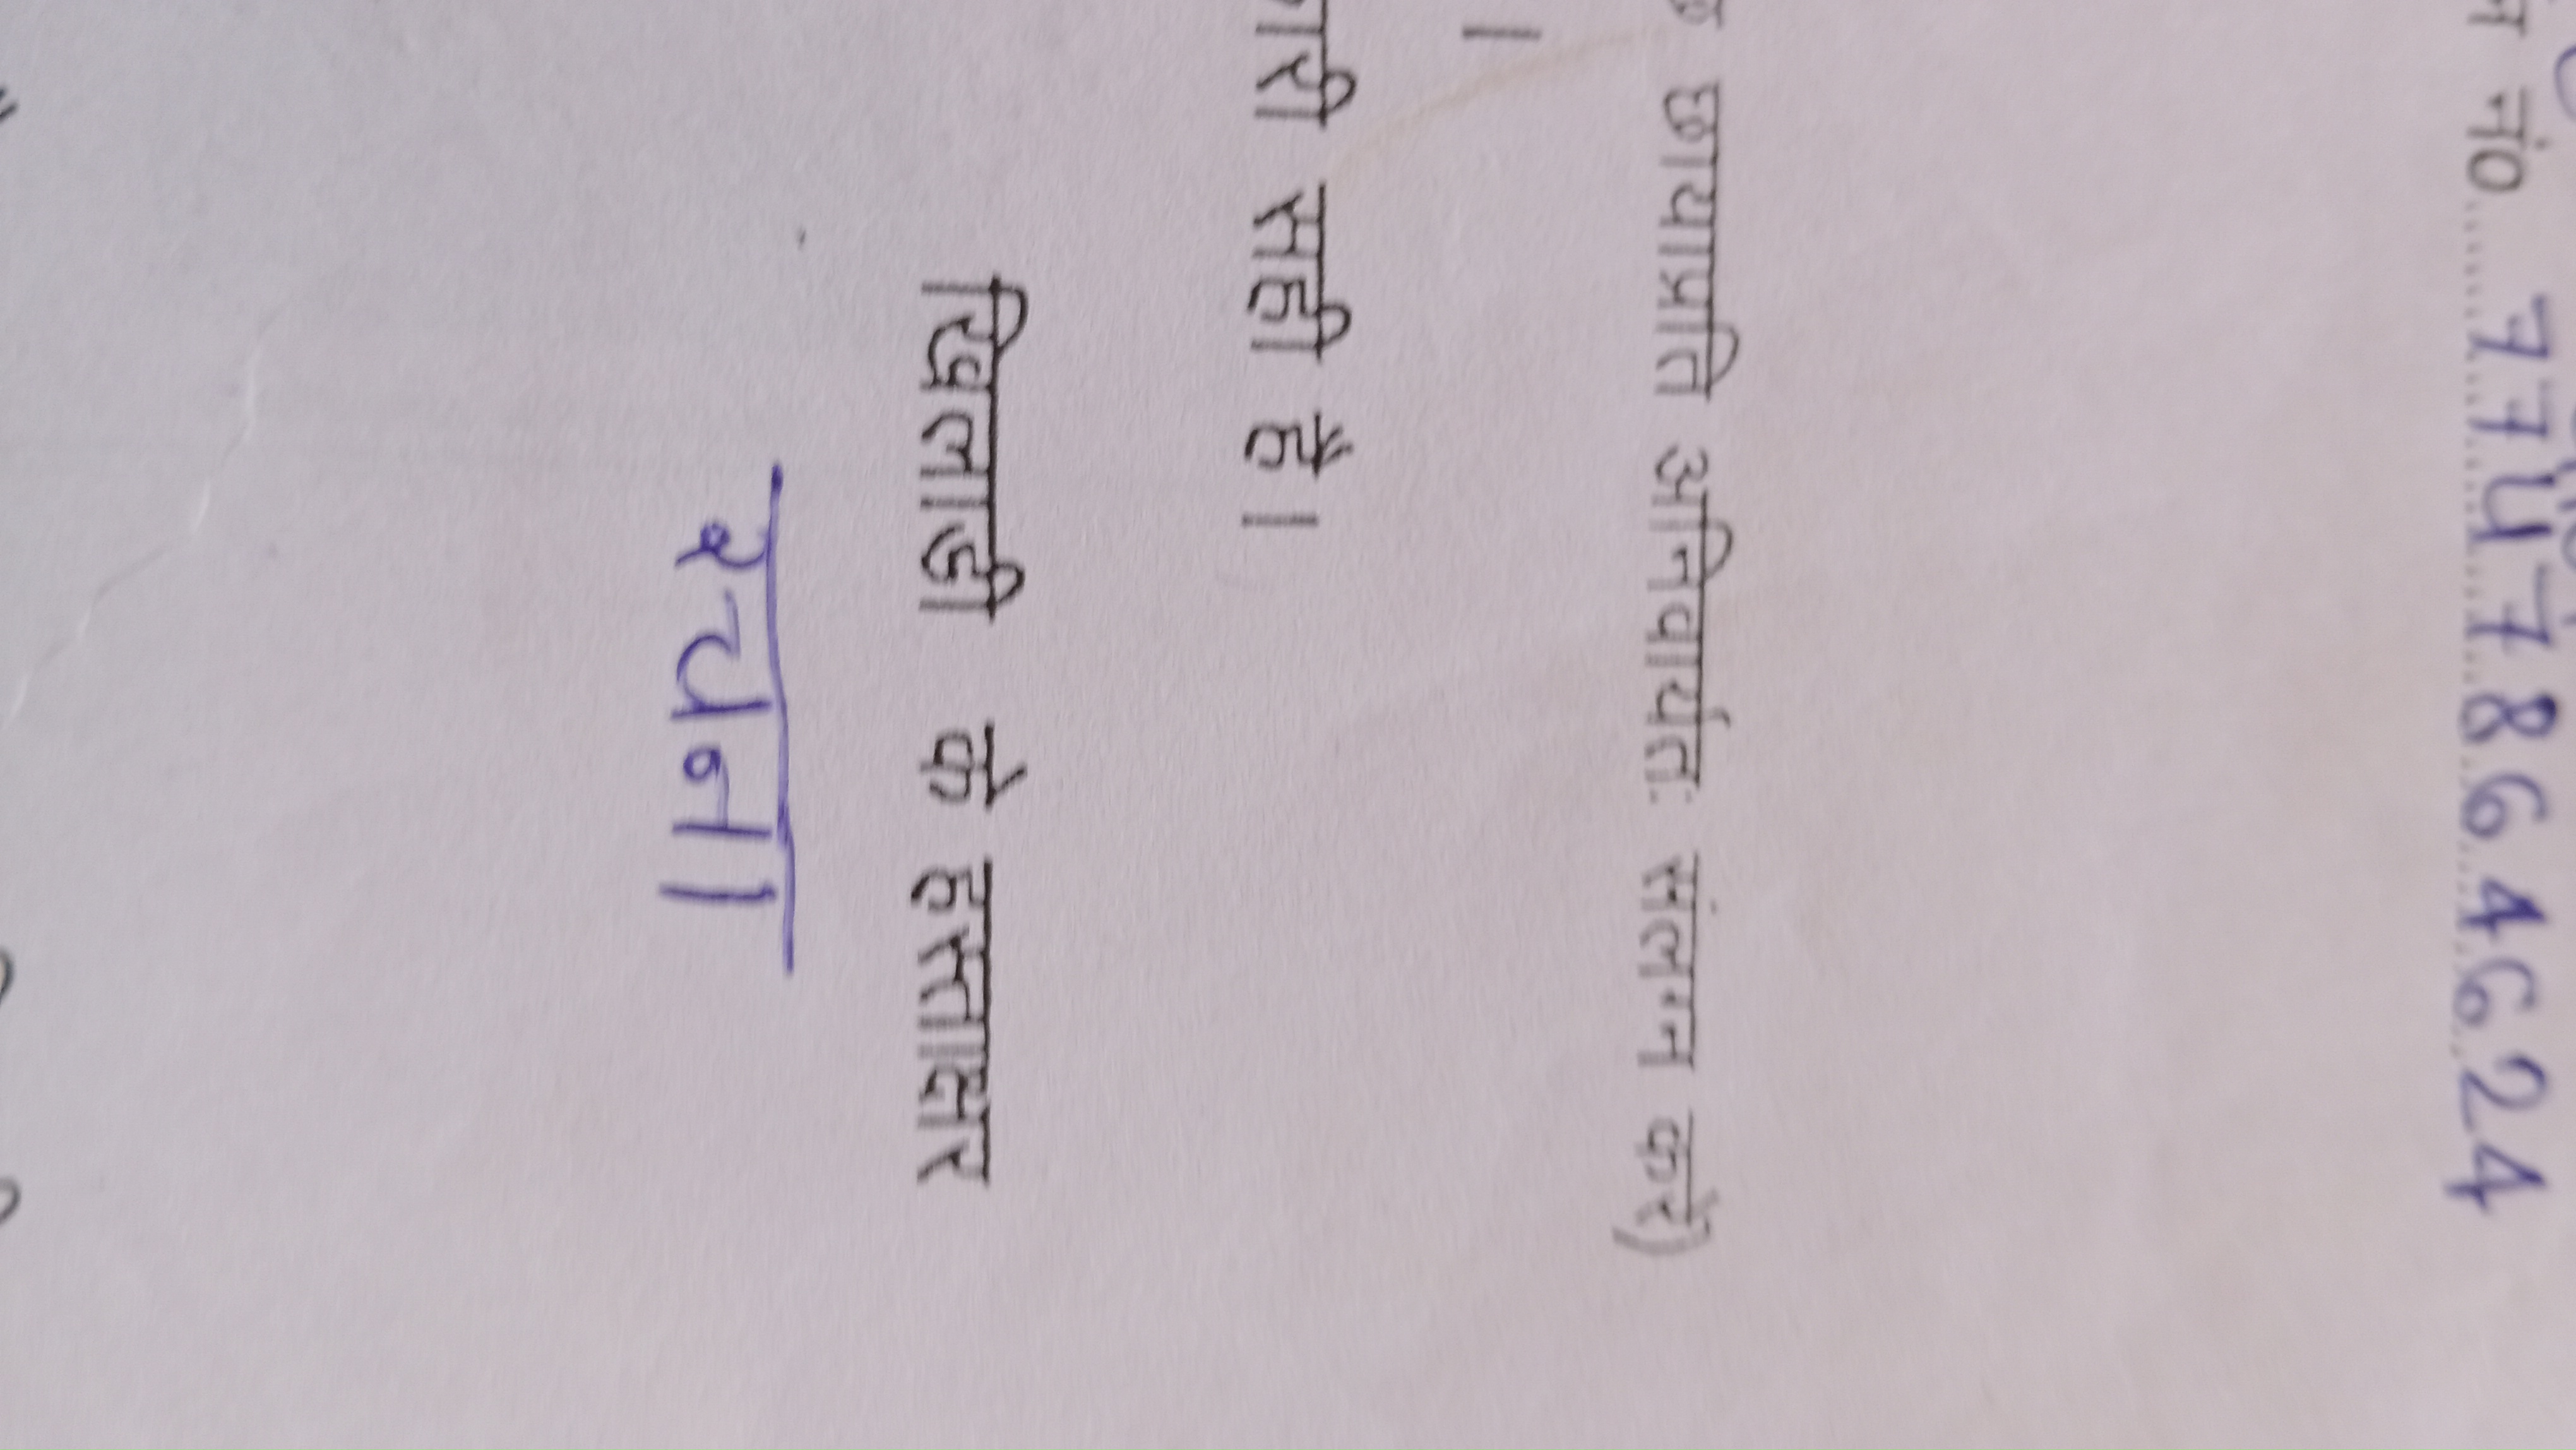 नं0 7747864624
छायाप्रति अनिवार्यतः संलग्न करें)
।
सही है।
खिलाडी के हस्ताक्षर
रचना